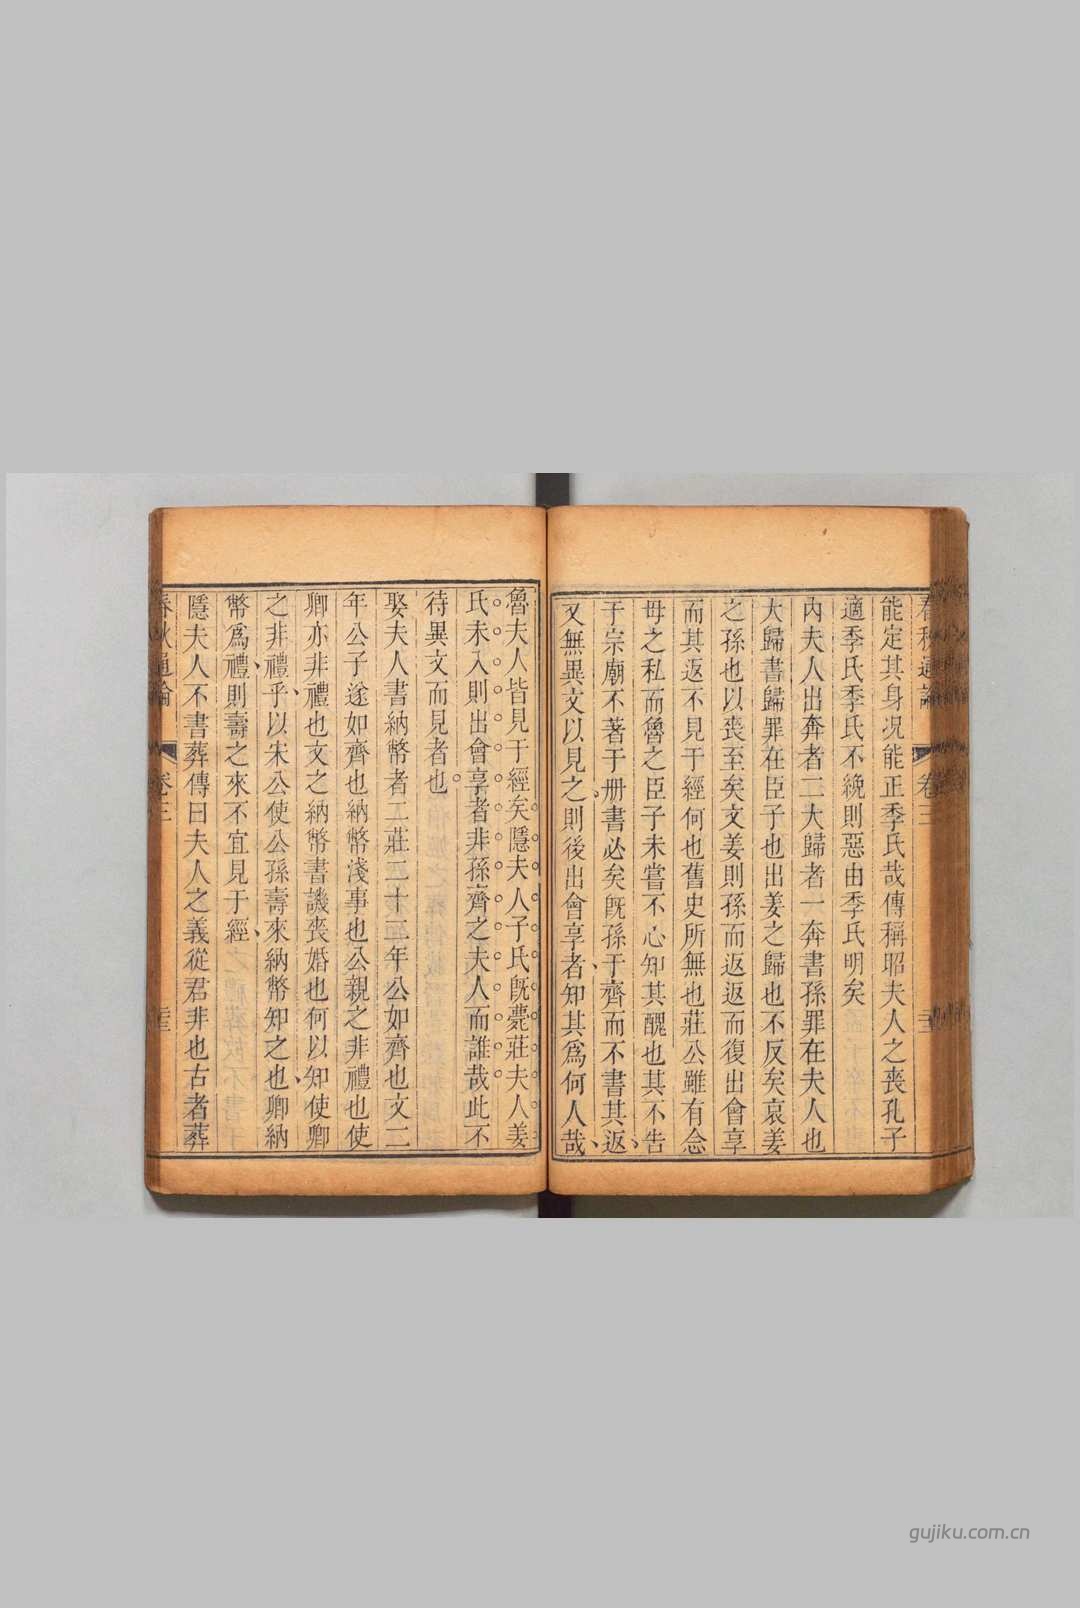 春秋通論 卷三
能定其身况能正季氏哉傳稱昭夫人之喪孔子
適季氏季氏不絻則惡由季氏明矣
內夫人出奔者二大歸者一奔書孫罪在夫人也
大歸書歸罪在臣子也出姜之歸也不反矣哀姜
之孫也以喪至矣文姜則孫而返返而復出會享
而其返不見于經何也舊史所無也莊公雖有念
母之私而魯之臣子未嘗不心知其醜也其不告
于宗廟不著于册書必矣旣孫于齊而不書其返
又無異文以見之則後出會享者知其爲何人哉
魯夫人皆見于經矣隱夫人子氏旣薨莊夫人姜
氏未入則出會享者非孫齊之夫人而誰哉此不
待異文而見者也
娶夫人書納幣者二莊二十二年公如齊也文二
年公子遂如齊也納幣淺事也公親之非禮也使
卿亦非禮也文之納幣書譏喪婚也何以知使卿
之非禮乎以宋公使公孫壽來納幣知之也卿納
幣爲禮則壽之來不宜見于經
隱夫人不書葬傳曰夫人之義從君非也古者葬
春秋通論 卷三
gujiku.com.cn